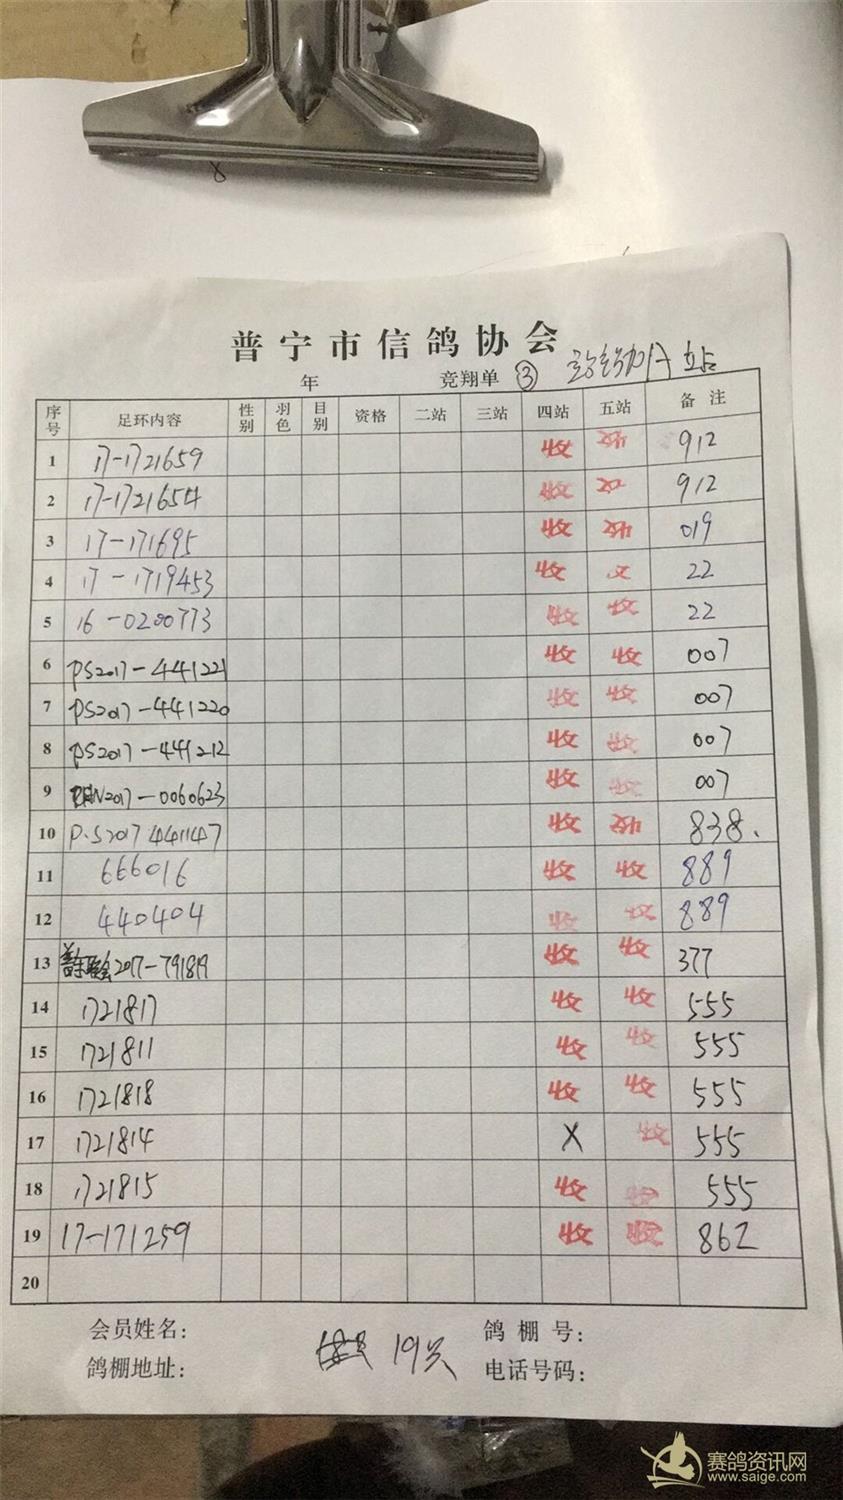 普宁市信鸽协会
年 竞翔单 ③
序号 足环内容 性别 羽色 目别 资格 二站 三站 四站 五站 备注
1 17-1721659 收 收 912
2 17-1721654 收 收 912
3 17-171695 收 收 019
4 17-1719453 收 收 22
5 16-0200773 收 收 22
6 PS2017-441221 收 收 007
7 PS2017-441220 收 收 007
8 PS2017-441212 收 收 007
9 2017-0060623 收 收 007
10 P.S2017 441147 收 收 838.
11 666016 收 收 889
12 440404 收 收 889
13 2017-791819 收 收 377
14 1721817 收 收 555
15 1721811 收 收 555
16 1721818 收 收 555
17 1721814 X 收 555
18 1721815 收 收 555
19 17-171259 收 收 862
20
会员姓名： 鸽棚号：
19只
鸽棚地址： 电话号码：
赛鸽资讯网
www.saige.com